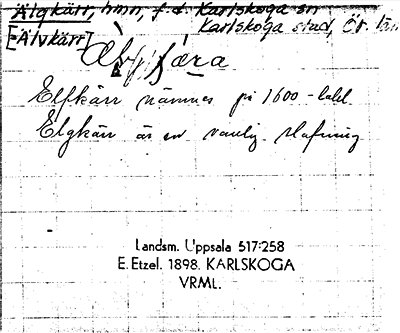 Älgkärr, hmn, f. d. Karlskoga sn
[=Älvkärr] Karlskoga stad, Ör. län
Elfkärr nämnes på 1600-talet
Elgkärr är en vanlig skrifning
Landsm. Uppsala 517:258
E. Etzel. 1898. KARLSKOGA
VRML.